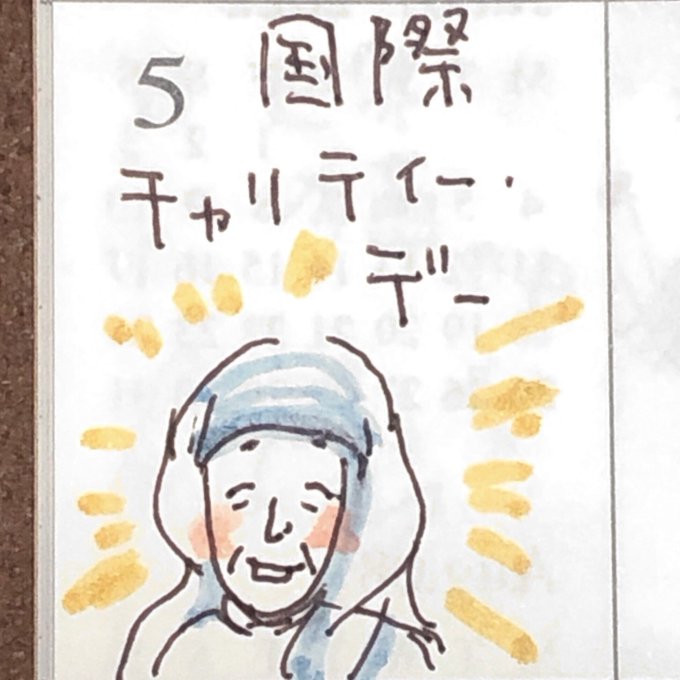 5 国際
チャリティー・
デー